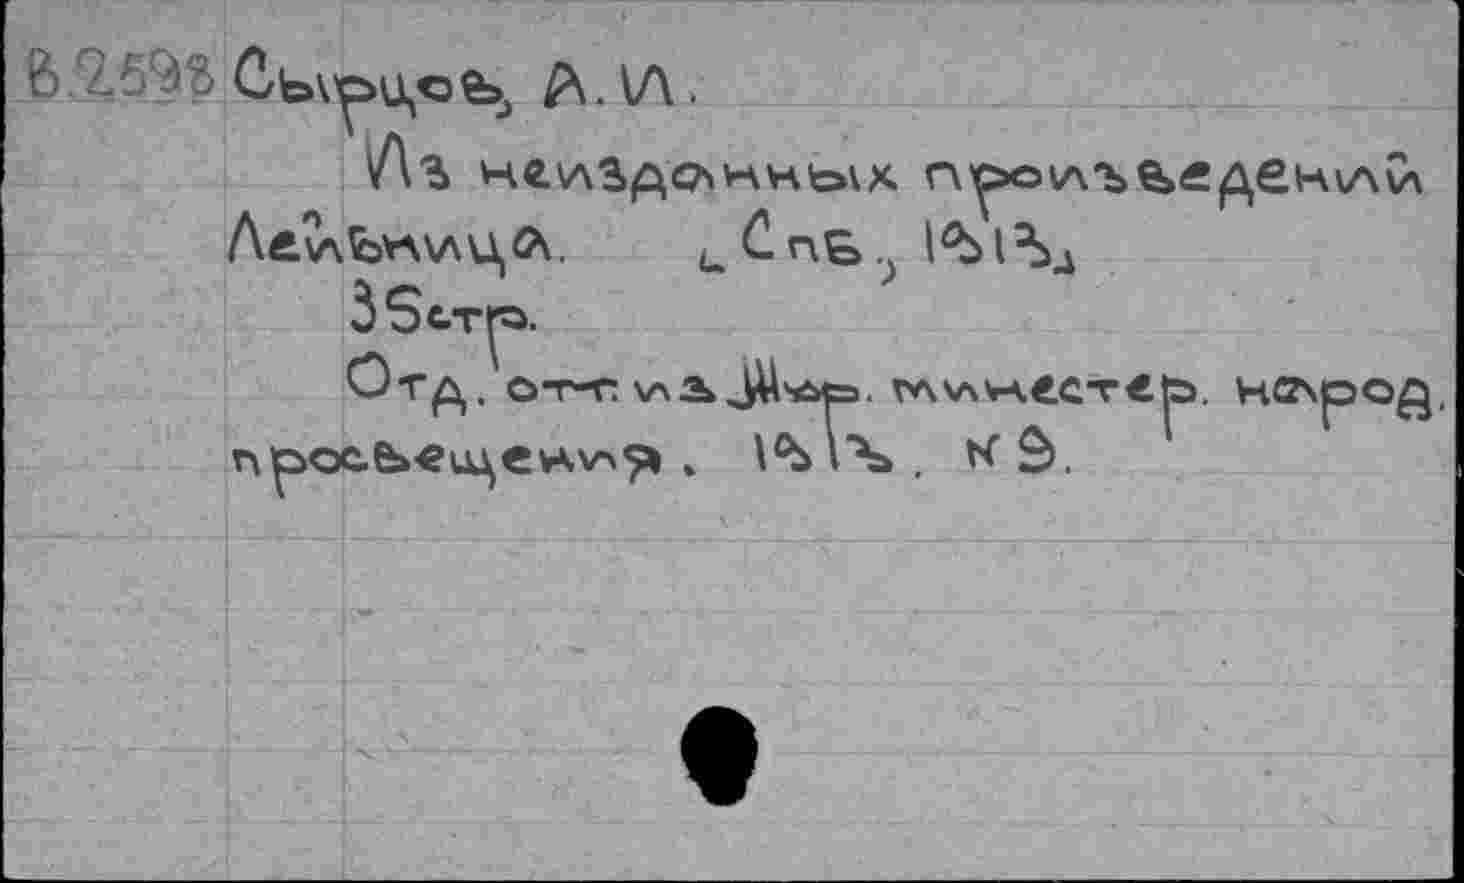 В.2598 Сырцов, А.И.
Из неизданных произведений
Лейбница. СПБ., 1913,
35стр.
Отд. отт. из Жур. министер. народ.
просвещения. 1913. № 9.